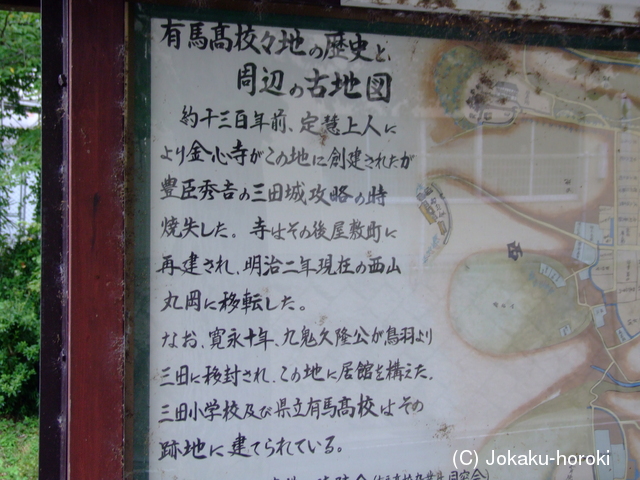 有馬高校々地の歴史と、
周辺の古地図
約千三百年前、定慧上人に
より金心寺がこの地に創建されたが
豊臣秀吉の三田城攻略の時
焼失した。寺はその後屋敷町に
再建され、明治二年現在の西山
丸岡に移転した。
なお、寛永十年、九鬼久隆公が鳥羽より
三田に移封され、この地に居館を構えた。
三田小学校及び県立有馬高校はその
跡地に建てられている。
(C) Jokaku-horoki